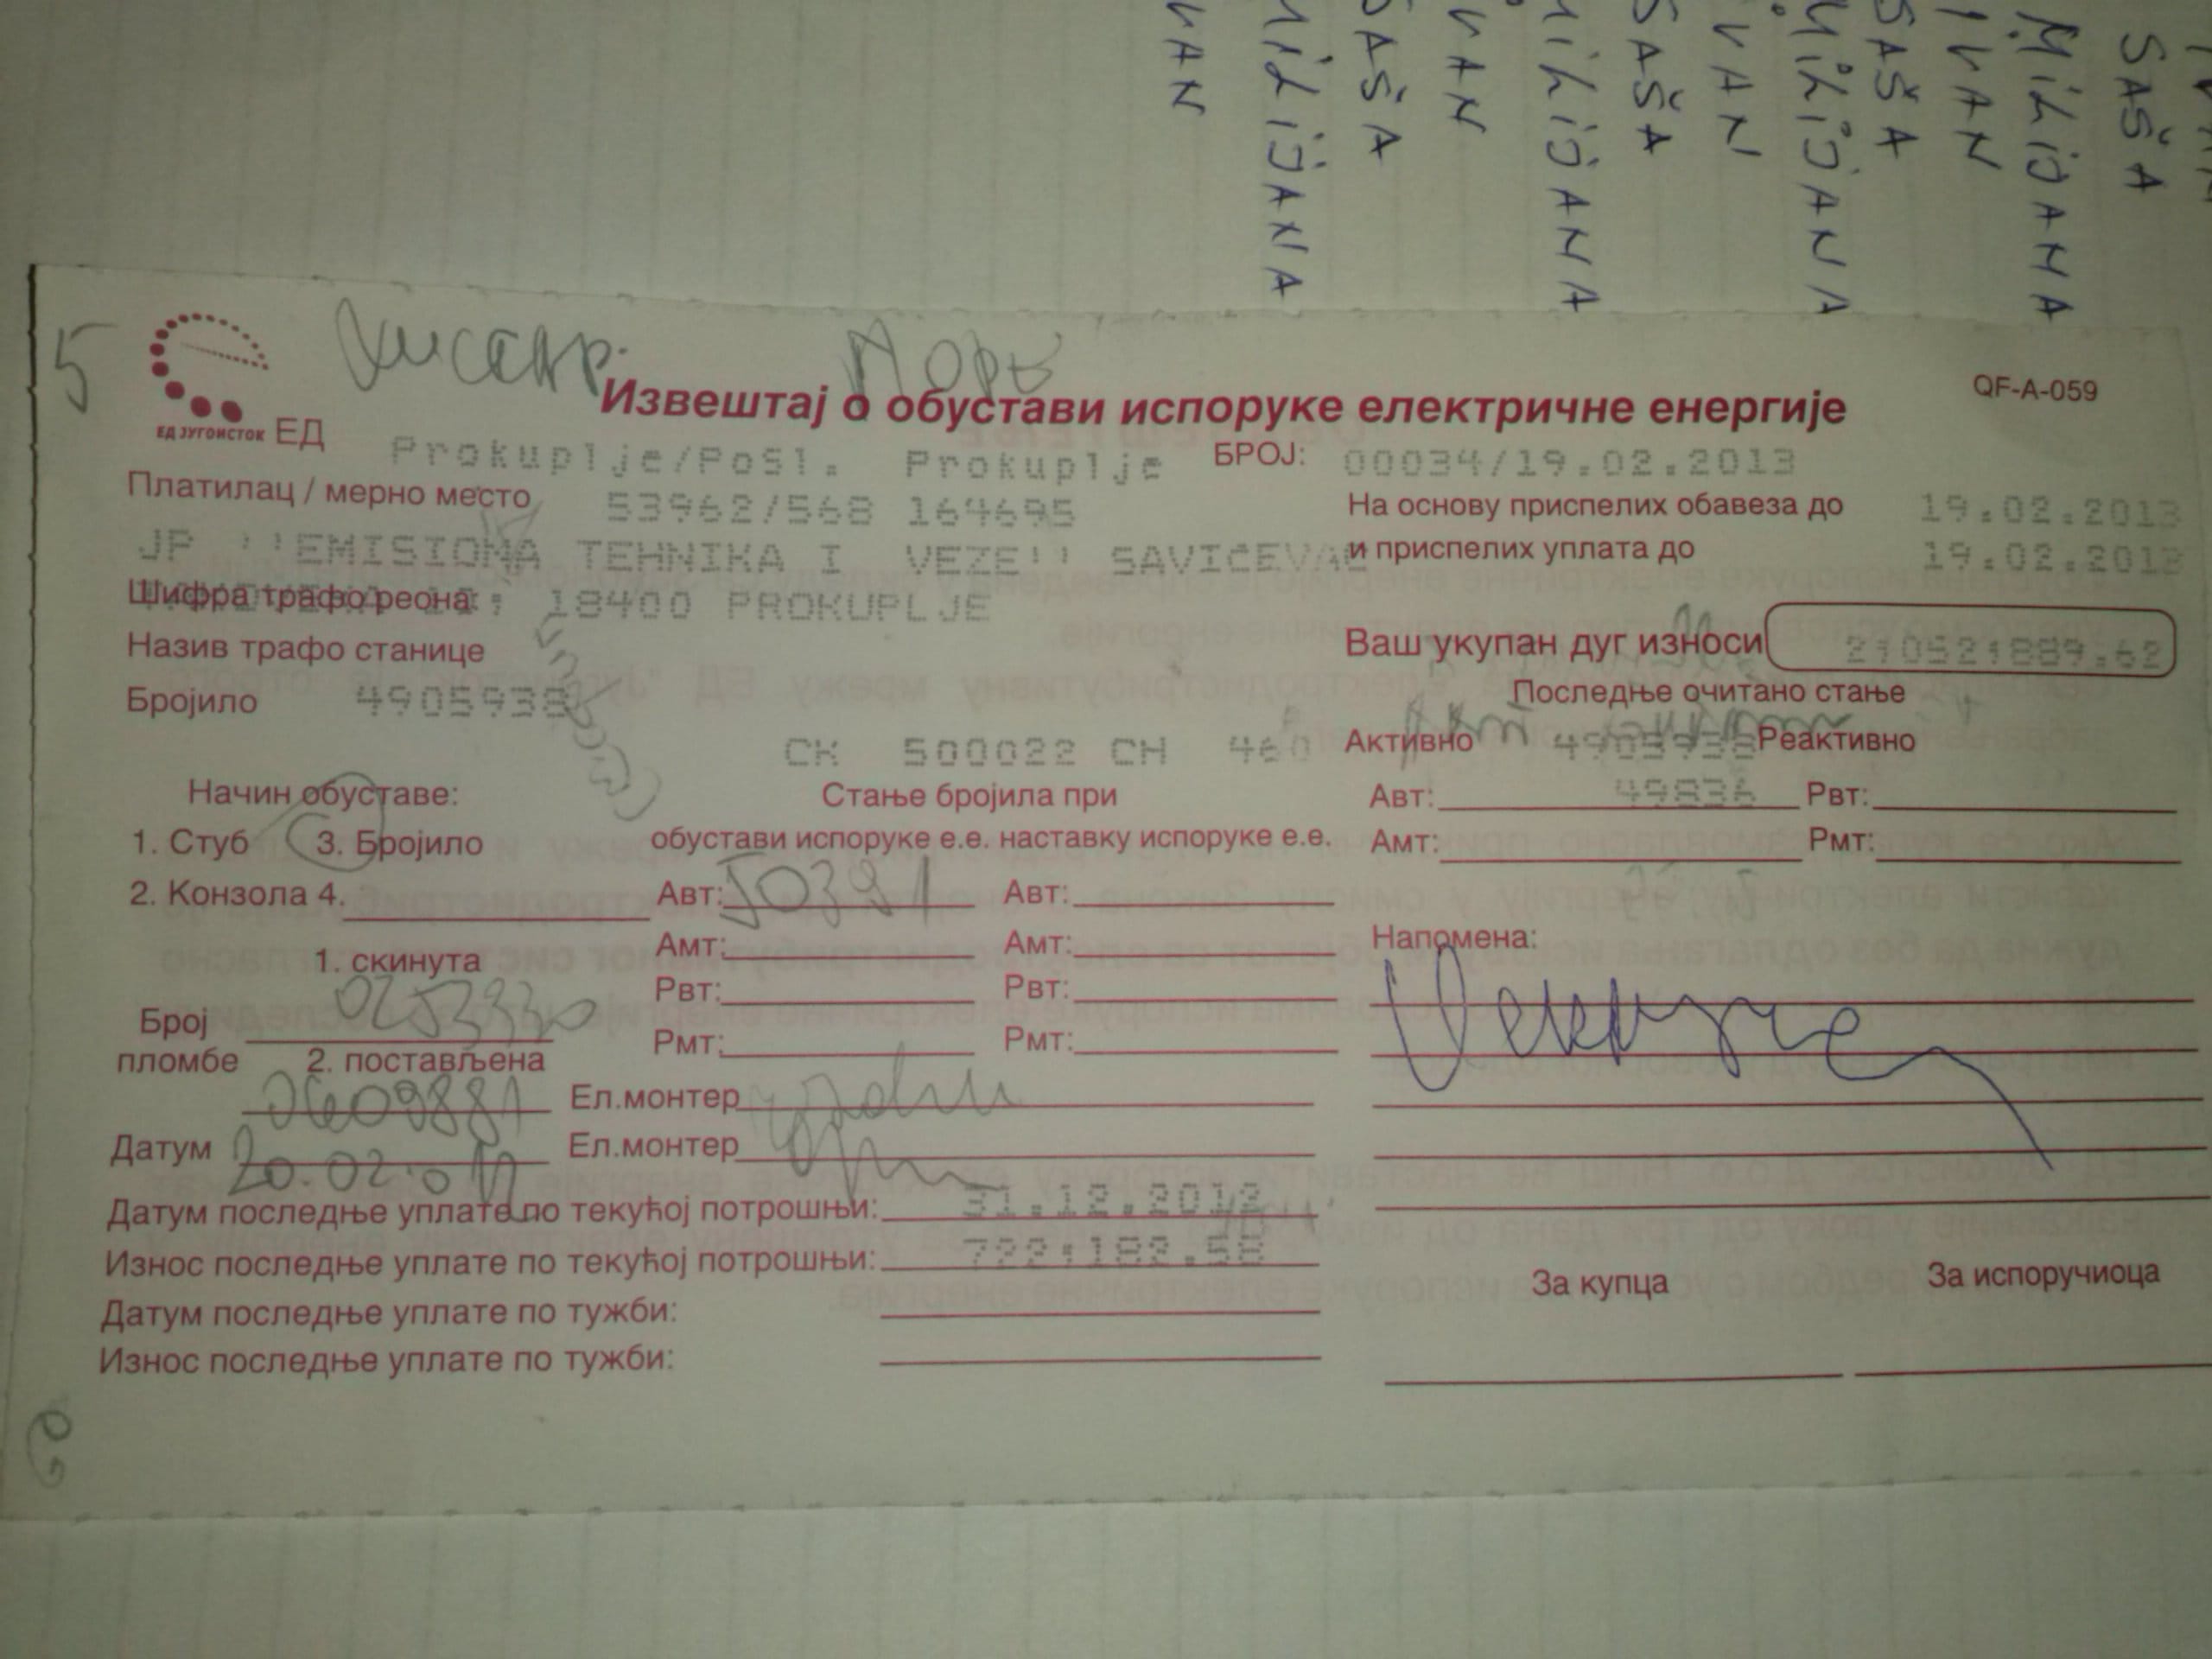 IVAN
SAŠA
MILIJANA
IVAN
SAŠA
MILIJANA
IVAN
SAŠA
MILIJANA
IVAN
SAŠA
MILIJANA
IVAN
5
Хисар.
ЕД ЈУГОИСТОК ЕД
Извештај о обустави испоруке електричне енергије
QF-A-059
Prokuplje/Posl. Prokuplje
БРОЈ: 00034/19.02.2013
Платилац / мерно место 53962/568 164695
На основу приспелих обавеза до 19.02.2013
JP ''EMISIONA TEHNIKA I VEZE'' SAVIĆEVAC
и приспелих уплата до 19.02.2013
Шифра трафо реона: 18400 PROKUPLJE
Назив трафо станице
Ваш укупан дуг износи 2:052:889.62
Бројило 4905938
Последње очитано стање
СК 500022 СН 460
Активно 4905938 Реактивно
Начин обуставе:
Стање бројила при
Авт: 49836 Рвт:
1. Стуб 3. Бројило
обустави испоруке е.е. наставку испоруке е.е.
Амт: Рмт:
2. Конзола 4.
Авт: 50391 Авт:
Амт: Амт:
Напомена:
1. скинута
Рвт: Рвт:
Број
пломбе
Рмт: Рмт:
2. постављена
0609881
Ел.монтер
Датум 20.02.
Ел.монтер
Датум последње уплате по текућој потрошњи: 31.12.2012
Износ последње уплате по текућој потрошњи: 722:182.58
За купца За испоручиоца
Датум последње уплате по тужби:
Износ последње уплате по тужби: